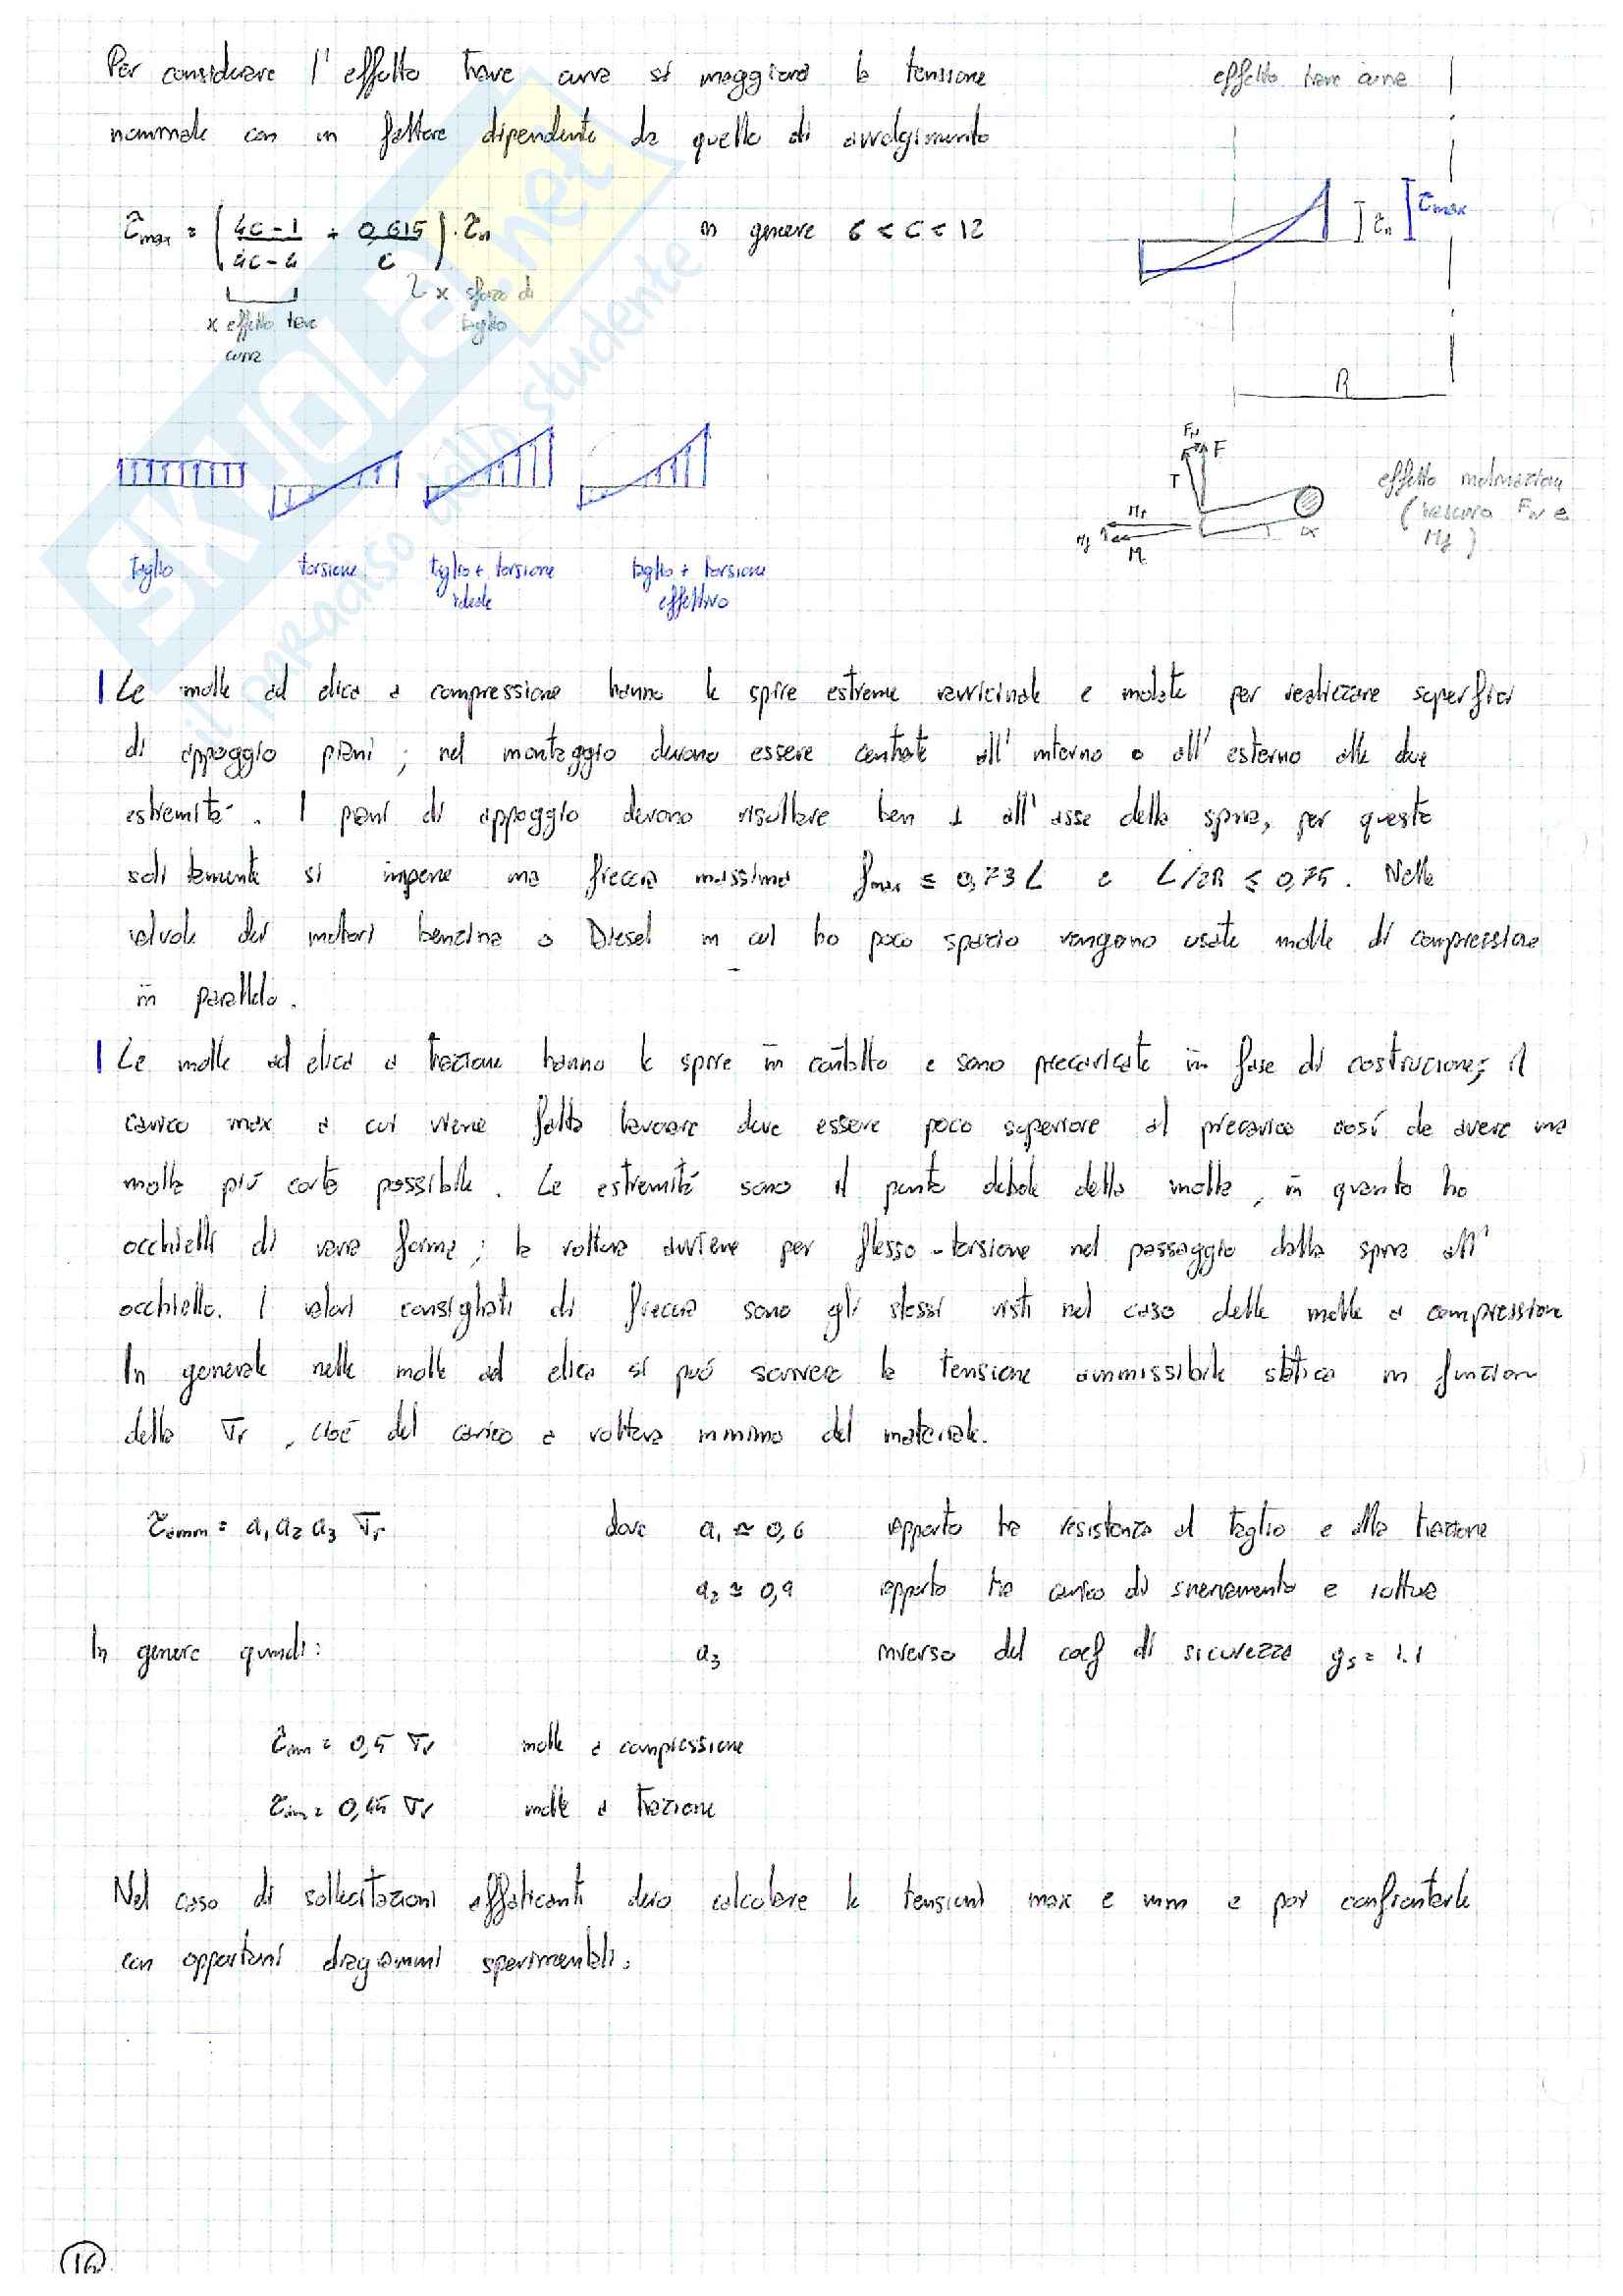 Per considerare l'effetto trave curva si maggiora la tensione
effetto trave curva
nominale con un fattore dipendente da quello di avvolgimento
τmax = (4C-1 / 4C-4 + 0,615 / C) · τn
in genere 6 < C < 12
τn τmax
x effetto trave
curva
x sforzo di
taglio
R
FN F
T
Mf
Mt
α
effetto inclinazione
(trascuro FN e
Mf)
taglio
torsione
taglio + torsione
ideale
taglio + torsione
effettivo
Le molle ad elica a compressione hanno le spire estreme ravvicinate e molate per realizzare superfici
di appoggio piani; nel montaggio devono essere centrate all'interno o all'esterno alle due
estremità. I piani di appoggio devono risultare ben ⊥ all'asse della spira, per questo
solitamente si impone una freccia massima fmax ≤ 0,73 L e L/2R ≤ 0,75. Nelle
valvole dei motori benzina o Diesel in cui ho poco spazio vengono usate molle di compressione
in parallelo.
Le molle ad elica a trazione hanno le spire in contatto e sono precaricate in fase di costruzione; il
carico max a cui viene fatta lavorare deve essere poco superiore al precarico così da avere una
molla più corta possibile. Le estremità sono il punto debole della molla, in quanto ho
occhielli di varia forma; la rottura avviene per flesso-torsione nel passaggio dalla spira all'
occhiello. I valori consigliati di freccia sono gli stessi visti nel caso delle molle a compressione
In generale nelle molle ad elica si può scrivere la tensione ammissibile statica in funzione
della σr, cioè del carico a rottura minimo del materiale.
τamm = a1 a2 a3 σr
dove a1 ≃ 0,6 rapporto tra resistenza al taglio e alla trazione
a2 ≃ 0,9 rapporto tra carico di snervamento e rottura
In genere quindi:
a3 inverso del coef di sicurezza gs = 1.1
τam = 0,5 σr molle a compressione
τam = 0,45 σr molle a trazione
Nel caso di sollecitazioni affaticanti devo calcolare le tensioni max e min e poi confrontarle
con opportuni diagrammi sperimentali.
16
SKUOLA.net
il paradiso dello studente